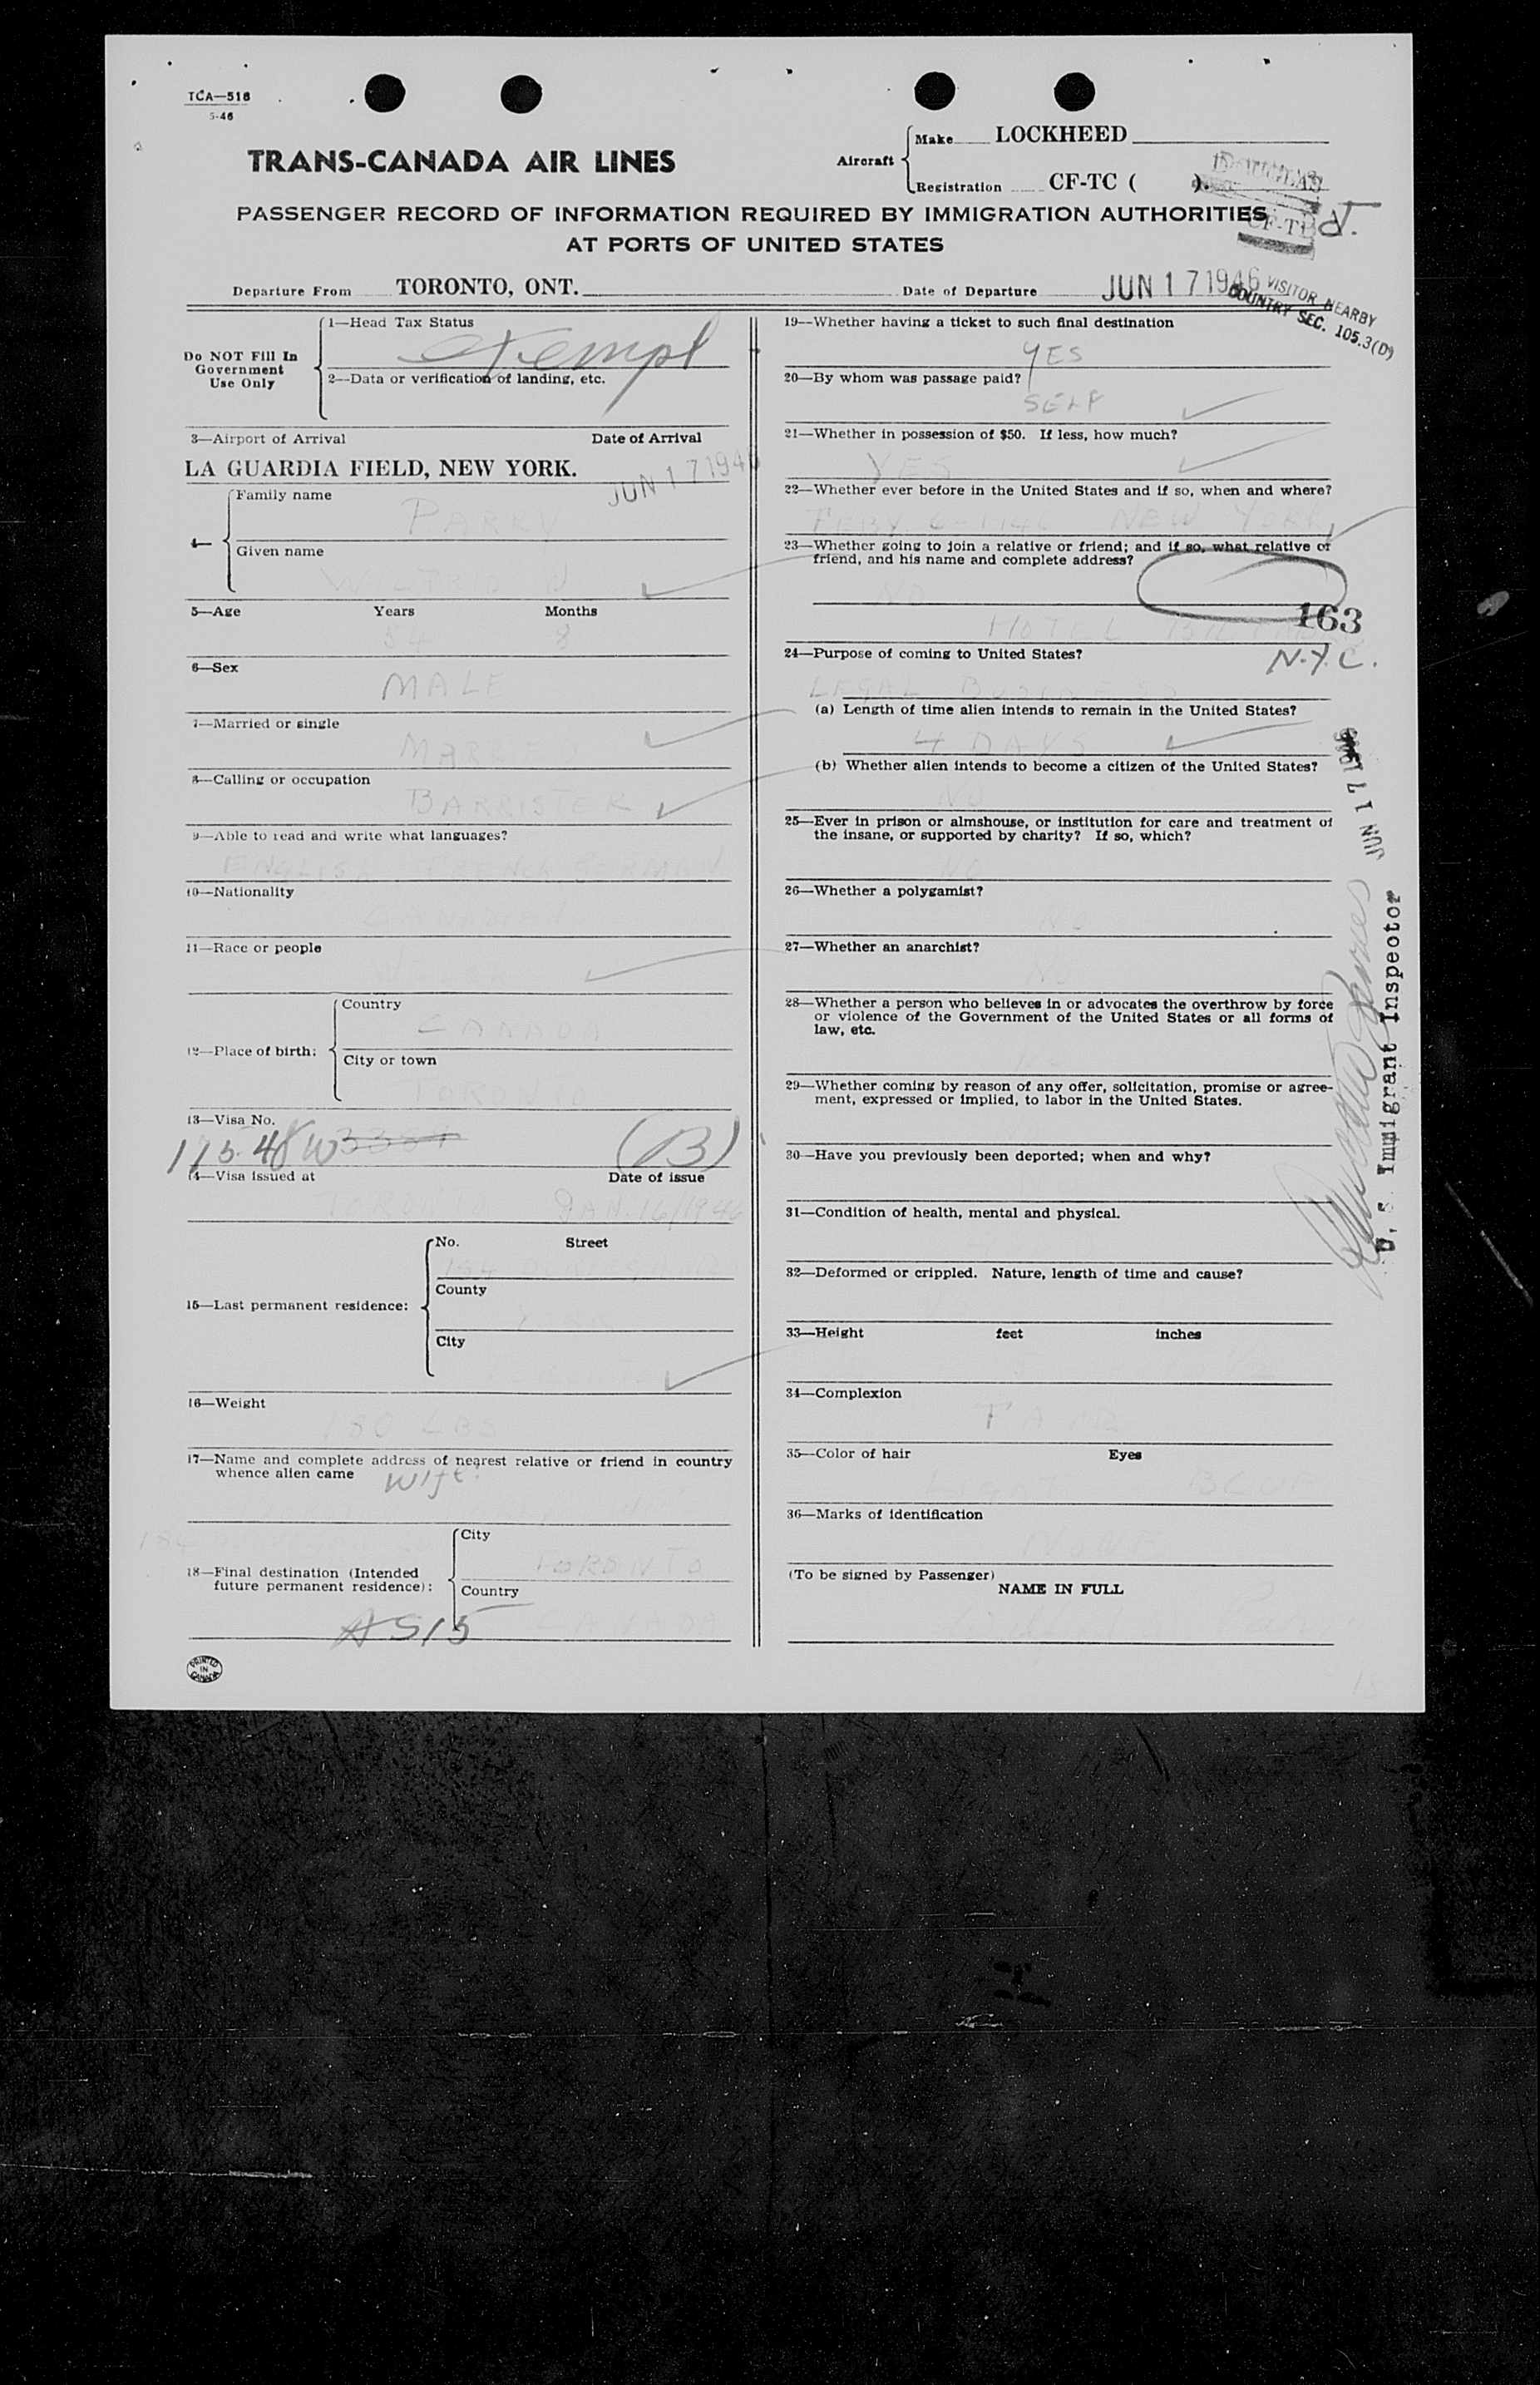 TCA—518
5-46
TRANS-CANADA AIR LINES
Aircraft
Make LOCKHEED
Registration CF-TC ( ).
DOUGLAS
CF-TD
PASSENGER RECORD OF INFORMATION REQUIRED BY IMMIGRATION AUTHORITIES
AT PORTS OF UNITED STATES
Departure From TORONTO, ONT. Date of Departure JUN 17 1946
VISITOR NEARBY
COUNTRY SEC. 105.3(D)
Do NOT Fill In
Government
Use Only
1—Head Tax Status
exempt
2—Data or verification of landing, etc.
3—Airport of Arrival Date of Arrival
LA GUARDIA FIELD, NEW YORK. JUN 17 194
4—
Family name
PARRY
Given name
5—Age Years Months
54 8
6—Sex
MALE
7—Married or single
MARRIED
8—Calling or occupation
BARRISTER
9—Able to read and write what languages?
ENGLISH FRENCH GERMAN
10—Nationality
CANADIAN
11—Race or people
12—Place of birth:
Country
CANADA
City or town
TORONTO
13—Visa No.
175.48 W3354 (B)
14—Visa issued at Date of issue
TORONTO JAN. 16/1946
15—Last permanent residence:
No. Street
184
County
YORK
City
16—Weight
180 LBS
17—Name and complete address of nearest relative or friend in country
whence alien came
wife.
184
18—Final destination (Intended
future permanent residence):
City
TORONTO
Country
CANADA
AS15
PRINTED
IN
CANADA
19—Whether having a ticket to such final destination
YES
20—By whom was passage paid?
SELF
21—Whether in possession of $50. If less, how much?
YES
22—Whether ever before in the United States and if so, when and where?
FEBY. 1946 NEW YORK
23—Whether going to join a relative or friend; and if so, what relative or
friend, and his name and complete address?
NO
163
HOTEL
24—Purpose of coming to United States?
N.Y.C.
LEGAL BUSINESS
(a) Length of time alien intends to remain in the United States?
4 DAYS
(b) Whether alien intends to become a citizen of the United States?
NO
25—Ever in prison or almshouse, or institution for care and treatment of
the insane, or supported by charity? If so, which?
NO
26—Whether a polygamist?
NO
27—Whether an anarchist?
28—Whether a person who believes in or advocates the overthrow by force
or violence of the Government of the United States or all forms of
law, etc.
29—Whether coming by reason of any offer, solicitation, promise or agree-
ment, expressed or implied, to labor in the United States.
30—Have you previously been deported; when and why?
31—Condition of health, mental and physical.
32—Deformed or crippled. Nature, length of time and cause?
33—Height feet inches
34—Complexion
35—Color of hair Eyes
BLUE
36—Marks of identification
(To be signed by Passenger)
NAME IN FULL
JUN 17 1946
U. S. Immigrant Inspector